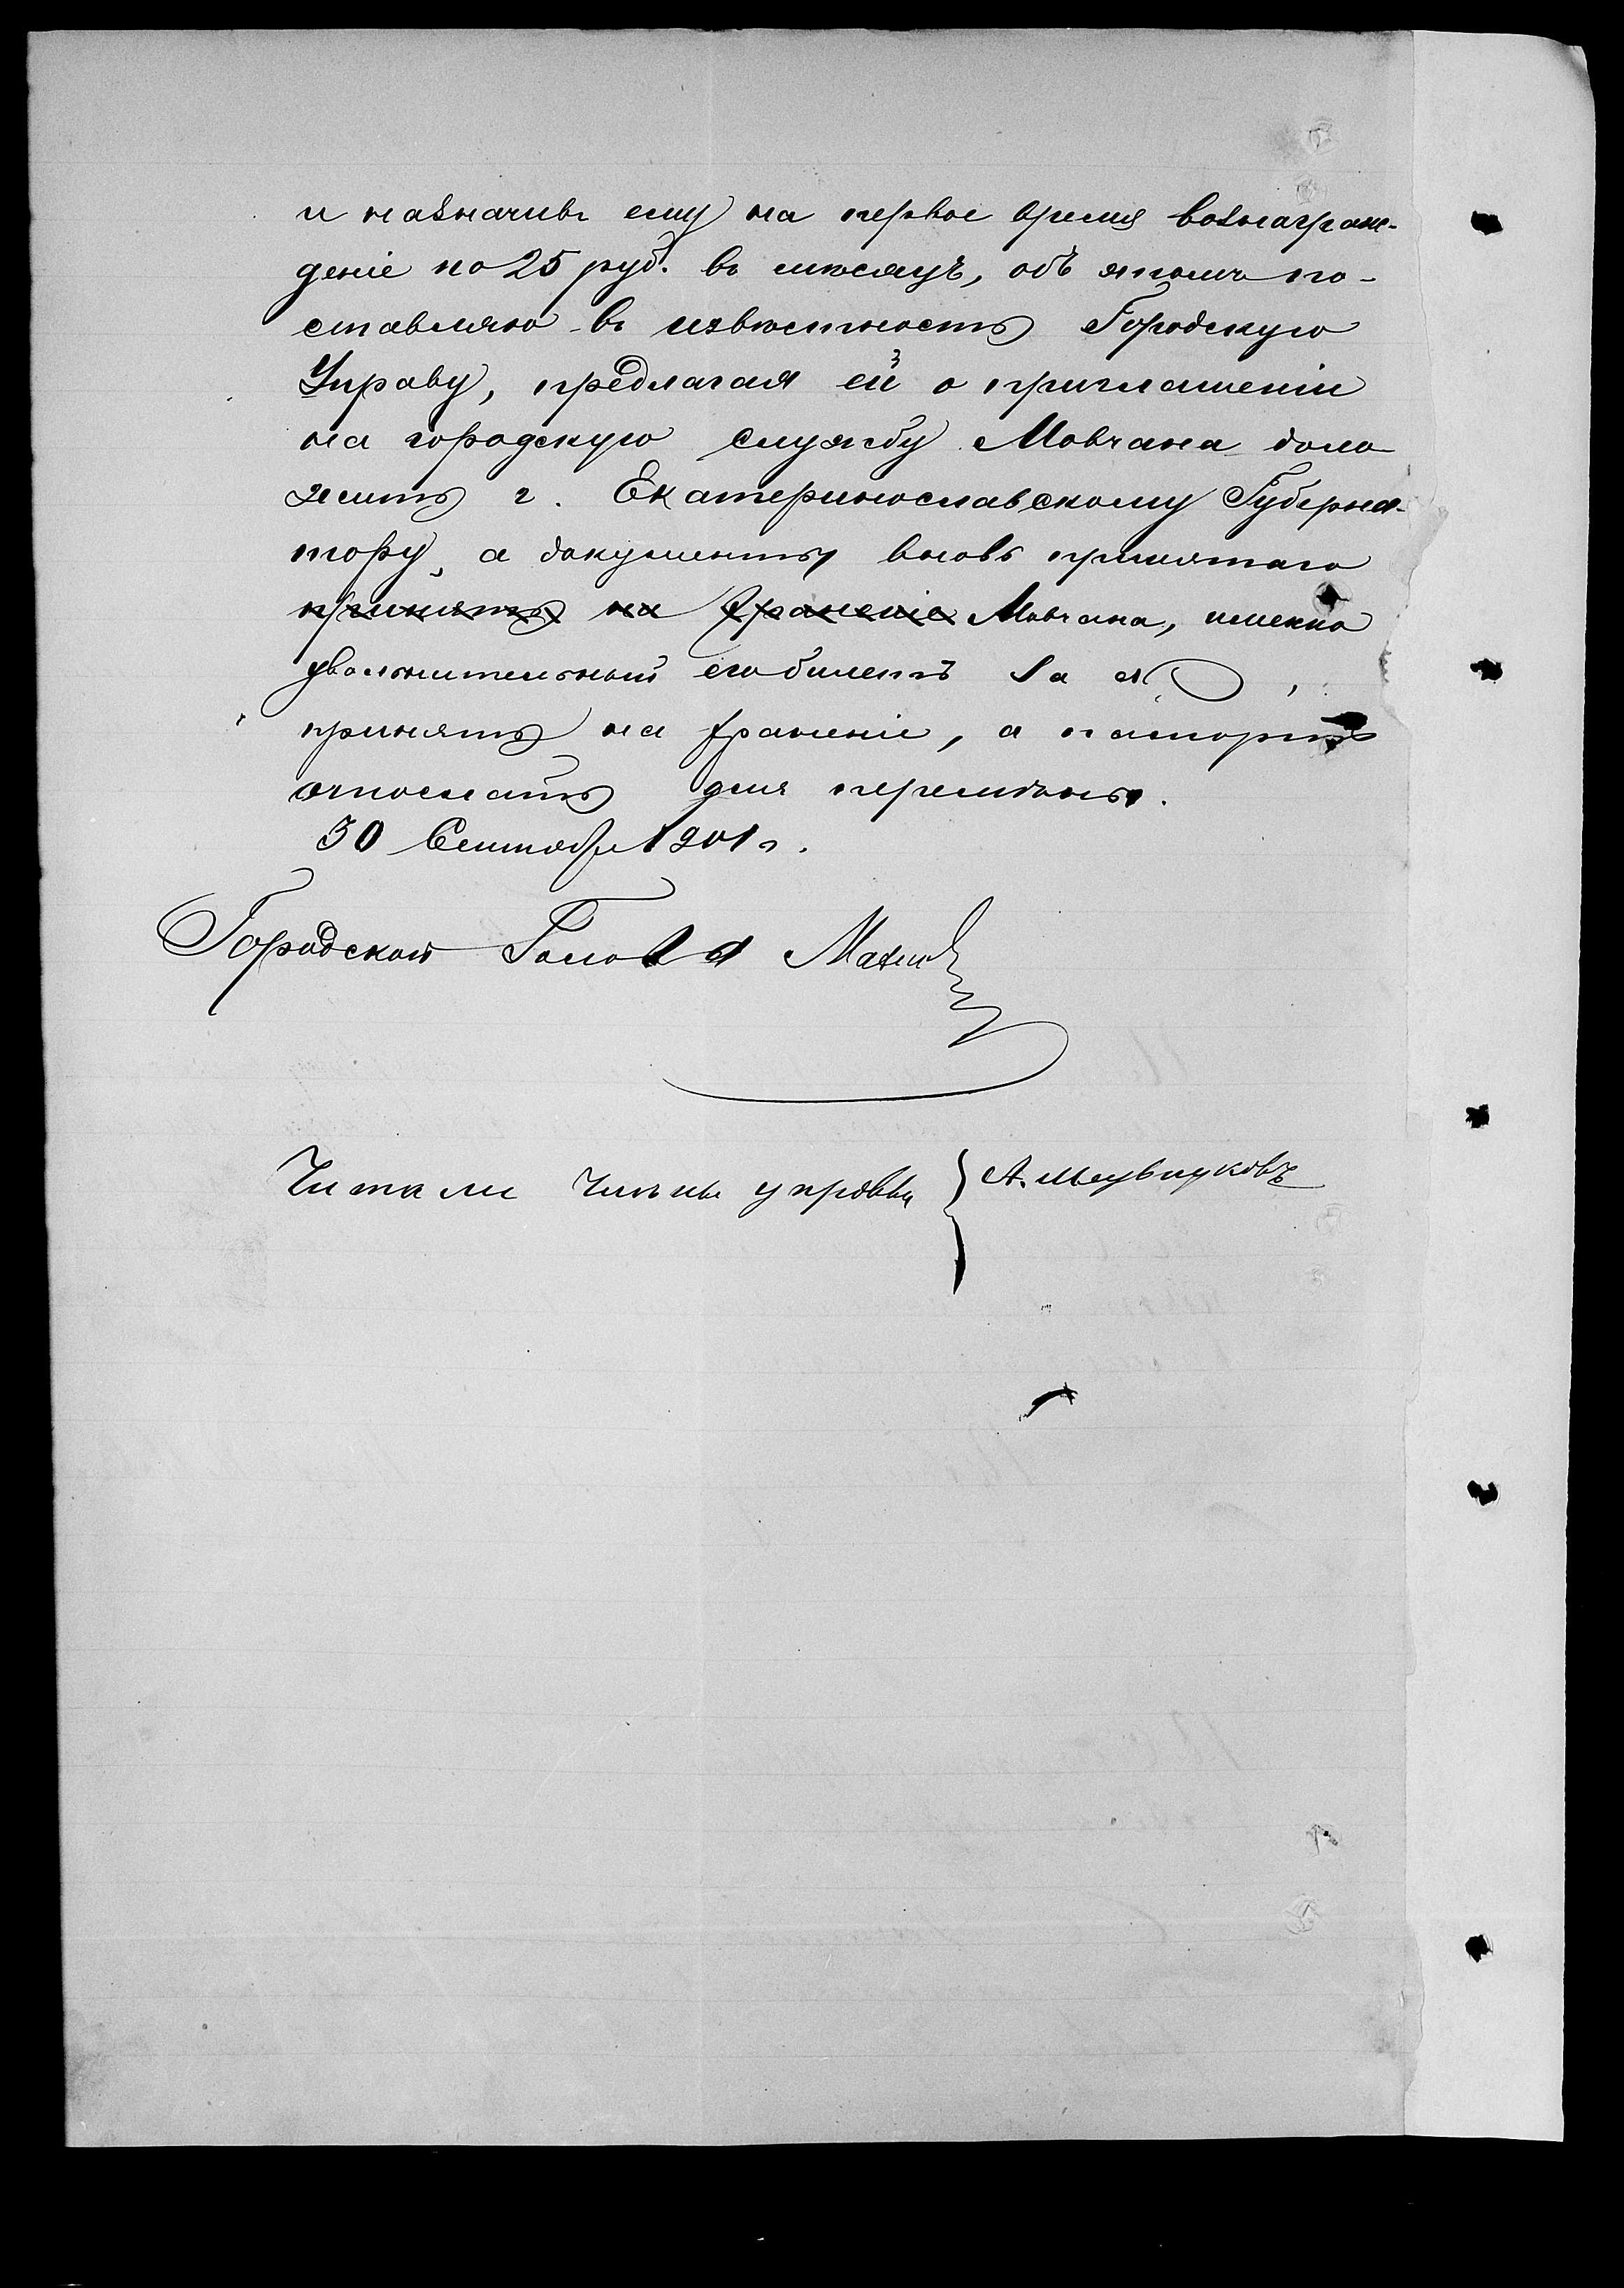 и назначивъ ему на первое время вознаграж-
деніе по 25 руб. въ мѣсяцъ, объ этомъ по-
ставляю въ извѣстность Городскую
Управу, предлагая ей о приглашеніи
на городскую службу Мовчана доло-
жить г. Екатеринославскому Губерна-
тору, а документы вновь принятаго
принять на храненіе Мовчана, именно
увольнительный его билетъ за №      ,
принять на храненіе, а паспортъ
отослать для перемѣны.
30 Сентября 1901 г.
Городской Голова
Читали члены управы } А. Медвѣдковъ